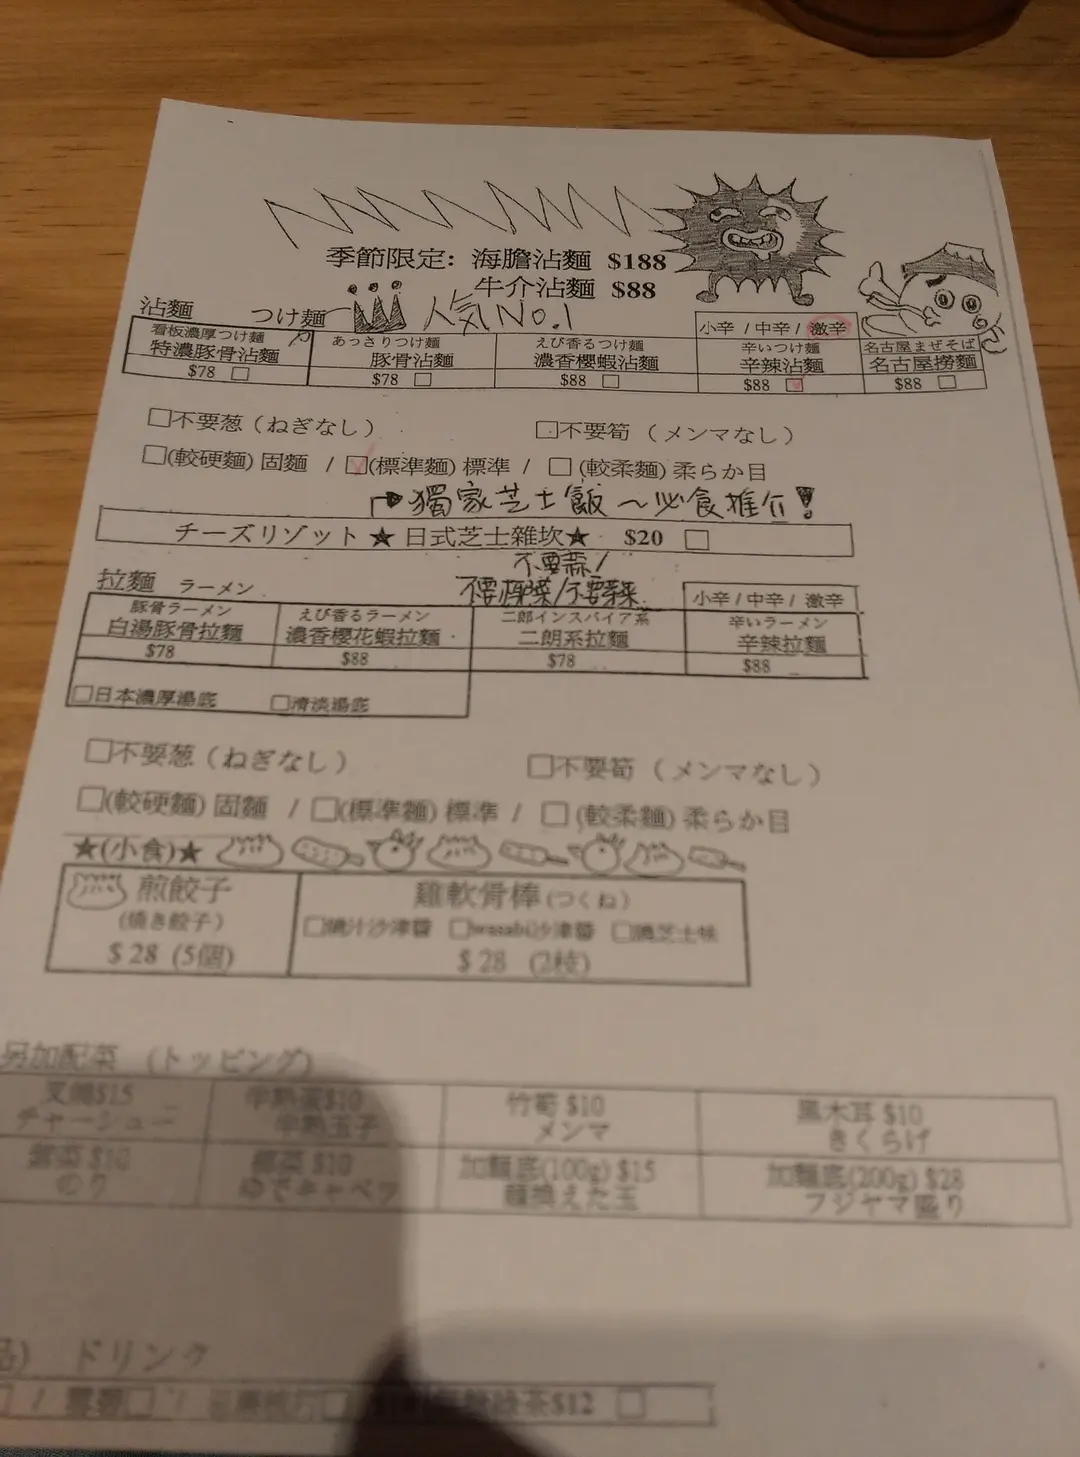 季節限定: 海膽沾麵 $188
牛介沾麵 $88
沾麵 つけ麺 人気No.1
小辛 / 中辛 / 激辛
看板濃厚つけ麺 あっさりつけ麺 えび香るつけ麺 辛いつけ麺 名古屋まぜそば
特濃豚骨沾麵 豚骨沾麵 濃香櫻蝦沾麵 辛辣沾麵 名古屋撈麵
$78 □ $78 □ $88 □ $88 ☑ $88 □
□不要葱（ねぎなし） □不要筍（メンマなし）
□(較硬麵) 固麵 / ☑(標準麵) 標準 / □(較柔麵) 柔らか目
獨家芝士飯～必食推介!
チーズリゾット ★ 日式芝士雜坎★ $20 □
不要蒜/
拉麵 ラーメン
小辛 / 中辛 / 激辛
豚骨ラーメン えび香るラーメン 二郎インスパイア系 辛いラーメン
白湯豚骨拉麵 濃香櫻花蝦拉麵 二朗系拉麵 辛辣拉麵
$78 $88 $78 $88
□日本濃厚湯底 □清淡湯底
□不要葱（ねぎなし） □不要筍（メンマなし）
□(較硬麵) 固麵 / □(標準麵) 標準 / □(較柔麵) 柔らか目
★(小食)★
煎餃子 雞軟骨棒(つくね)
(焼き餃子) □燒汁沙津醬 □wasabi沙津醬 □燒芝士味
$28 (5個) $28 (2枝)
另加配菜 (トッピング)
叉燒$15 半熟蛋$10 竹筍 $10 黑木耳 $10
チャーシュー 半熟玉子 メンマ きくらげ
$10 $10 加麵底(100g) $15 加麵底(200g) $28
のり 替え玉 フジヤマ盛り
ドリンク
綠茶$12 □